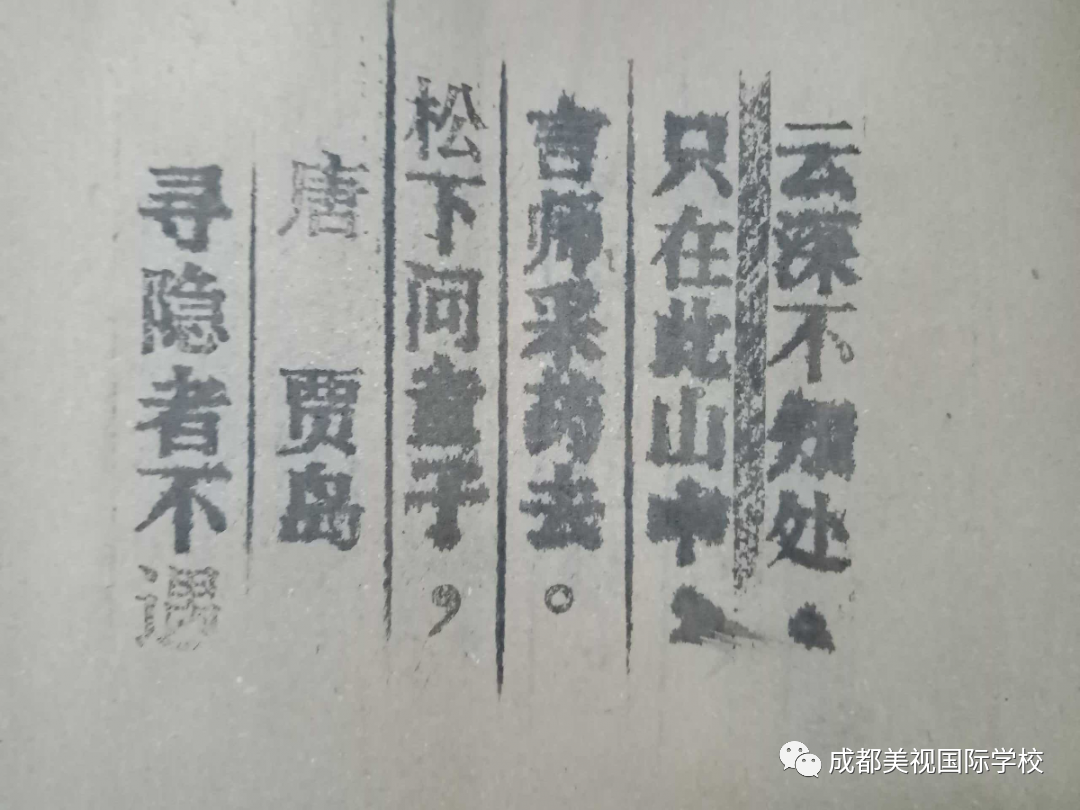 寻隐者不遇
唐 贾岛
松下问童子，
言师采药去。
只在此山中
云深不知处
成都美视国际学校